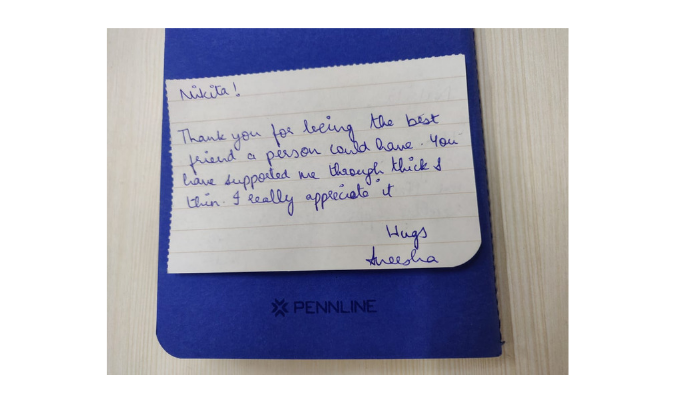 Nikita!
Thank you for being the best
friend a person could have. You
have supported me through thick &
thin. I really appreciate it
Hugs
Aneesha
PENNLINE